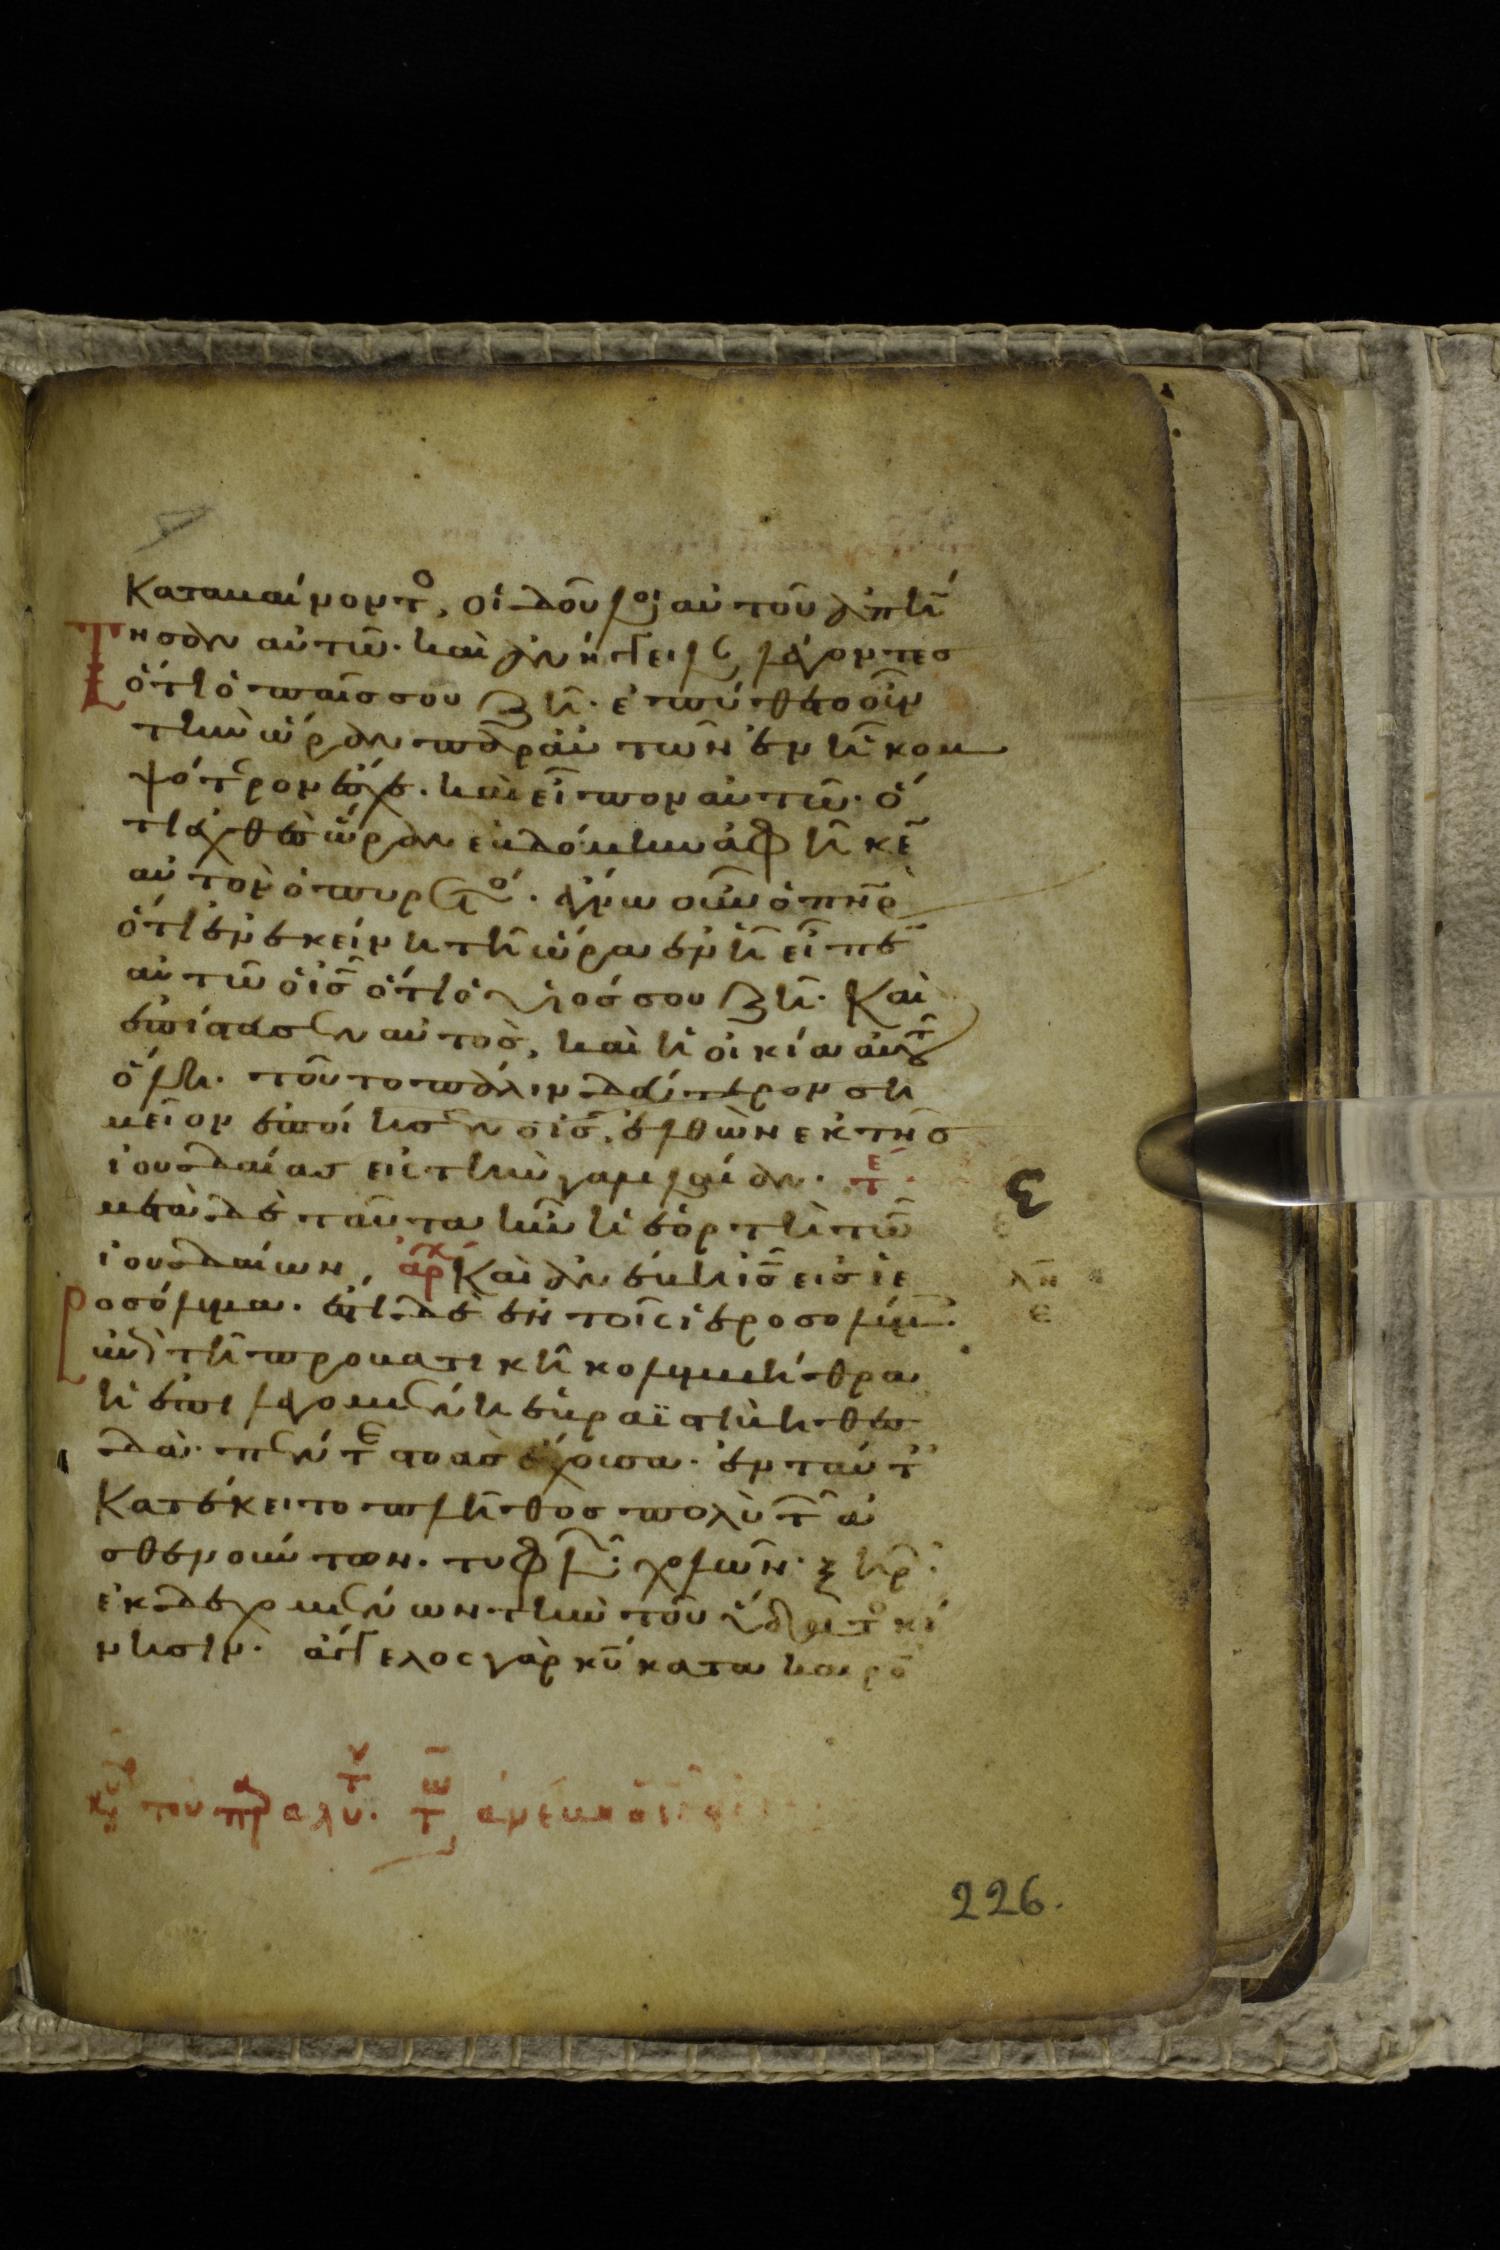 καταβαίνοντο, οἱ δοῦλοι αὐτοῦ ἀπήν
τησαν αὐτῶ· καὶ ἀνήγγειλαν λέγοντες
ὅτι ὁ παῖς σου ζῆ· ἐπύθετο οὖν
τὴν ὥραν παρ αὐτῶν ἐν ἧ κομ
ψότερον ἔσχε· καὶ εἶπον αὐτῶ· ὅ
τι χθὲς ὥραν ἑβδόμην ἀφῆκεν
αὐτὸν ὁ πυρετός· ἔγνω οὖν ὁ πηρ
ὅτι ἐν ἐκείνη τῆ ὥρα ἐν ἧ εἶπεν
αὐτῶ ὁ ις ὅτι ὁ υἱός σου ζῆ· Καὶ
ἐπίστευσεν αὐτὸς, καὶ ἡ οἰκία αὐτ
ὅλη· τοῦτο πάλιν δεύτερον ση
μεῖον ἐποίησεν ὁ ις, ἐλθὼν ἐκ τῆς
ἰουδαίας εἰς τὴν γαλιλαίαν· τε
μετὰ δὲ ταῦτα ἦν ἡ ἑορτὴ τῶν
ἰουδαίων, ἀρχ Καὶ ἀνέβη ις εἰς ἱε
ροσόλυμα· ἔστι δὲ ἐν τοῖς ἱεροσολύμ·
ἐπὶ τῆ προβατικῆ κολυμβήθρα
ἡ ἐπιλεγομένη ἑβραϊστὶ βηθεσ
δὰ· πέντε στοὰς ἔχουσα· ἐν ταύτ
κατέκειτο πλῆθος πολὺ τῶν ἀ
σθενούντων· τυφλῶν· χωλῶν· ξηρ
ἐκδεχομένων τὴν τοῦ ὕδατο κί
νησιν· ἄγγελος γὰρ κυ κατα καιρὸ
ε
λη
ε
κυ του παραλυ· τ
226.